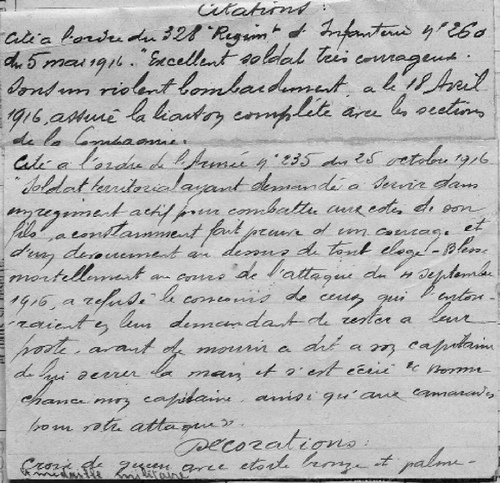 Citations :
Cité à l'ordre du 328e Regimt d'Infanterie n° 260
du 5 mai 1916. "Excellent soldat très courageux.
Sous un violent bombardement, a le 18 Avril
1916, assuré la liaison complète avec les sections
de la Compagnie.
Cité à l'ordre de l'Armée n° 235 du 25 octobre 1916
Soldat territorial ayant demandé à servir dans
un régiment actif pour combattre aux cotes de son
fils, a constamment fait preuve d'un courage et
d'un devouement au dessus de tout eloge - Blessé
mortellement au cours de l'attaque du 4 septembre
1916, a refusé le concours de ceux qui l'entou-
raient en leur demandant de rester a leur
poste, avant de mourir a dit a son capitaine
de lui serrer la main et s'est écrié "Bonne
chance mon capitaine, ainsi qu'aux camarades
pour votre attaque".
Décorations :
Croix de guerre avec etoile bronze et palme -
médaille militaire